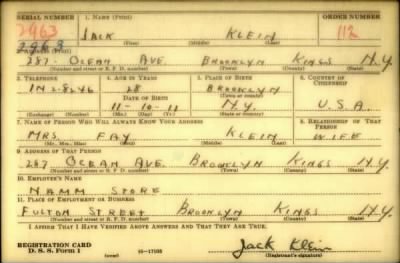 SERIAL NUMBER 1. NAME (Print) ORDER NUMBER
2963 JACK KLEIN 112
2963 (First) (Middle) (Last)
2. ADDRESS (Print)
287 OCEAN AVE. BROOKLYN KINGS N.Y.
(Number and street or R. F. D. number) (Town) (County) (State)
3. TELEPHONE 4. AGE IN YEARS 5. PLACE OF BIRTH 6. COUNTRY OF CITIZENSHIP
IN 2-8646 28 BROOKLYN
DATE OF BIRTH (Town or county)
11-10-11 N.Y. U.S.A.
(Exchange) (Number) (Mo.) (Day) (Yr.) (State or country)
7. NAME OF PERSON WHO WILL ALWAYS KNOW YOUR ADDRESS 8. RELATIONSHIP OF THAT PERSON
MRS. FAY KLEIN WIFE
(Mr., Mrs., Miss) (First) (Middle) (Last)
9. ADDRESS OF THAT PERSON
287 OCEAN AVE. BROOKLYN KINGS N.Y.
(Number and street or R. F. D. number) (Town) (County) (State)
10. EMPLOYER'S NAME
NAMM STORE
11. PLACE OF EMPLOYMENT OR BUSINESS
FULTON STREET BROOKLYN KINGS N.Y.
(Number and street or R. F. D. number) (Town) (County) (State)
I AFFIRM THAT I HAVE VERIFIED ABOVE ANSWERS AND THAT THEY ARE TRUE.
REGISTRATION CARD
D. S. S. Form 1 (over) 16-17105 Jack Klein
(Registrant's signature)